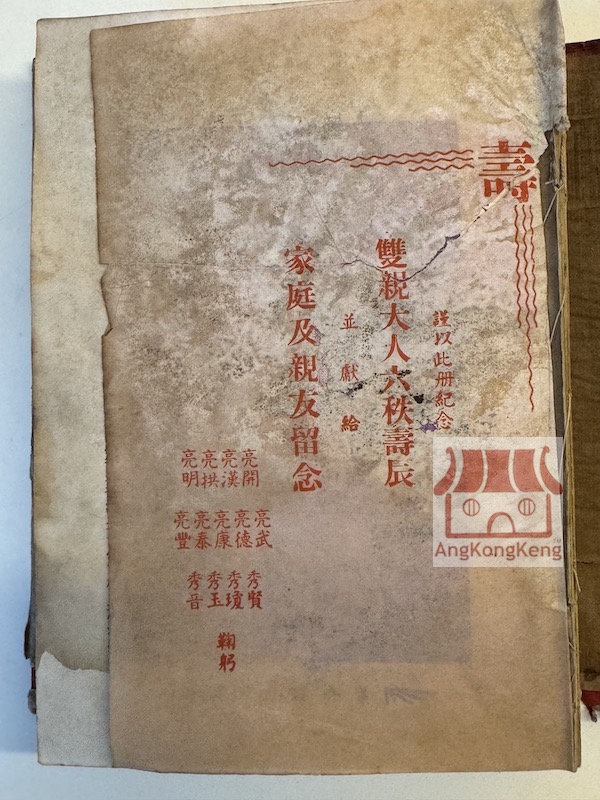 壽
謹以此册紀念
雙親大人六秩壽辰
並獻給
家庭及親友留念
亮開
亮漢
亮拱
亮明
亮武
亮德
亮康
亮泰
亮豐
秀賢
秀瓊
秀玉
秀音
鞠躬
AngKongKeng™